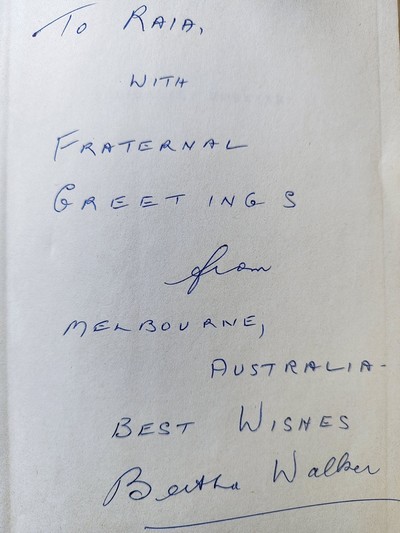 To RAIA,
WITH
FRATERNAL
GREETINGS
from
MELBOURNE,
AUSTRALIA-
BEST WISHES
Bertha Walker